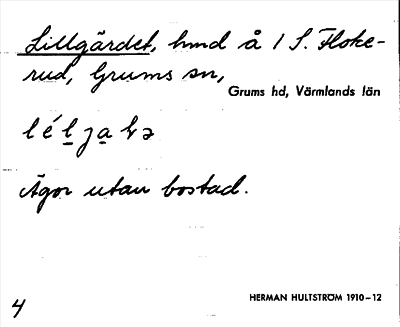 Lillgärdet, hmd å 1 S. Floke-
rud, Grums sn,
Grums hd, Värmlands län
Ägor utan bostad.
HERMAN HULTSTRÖM 1910–12
4